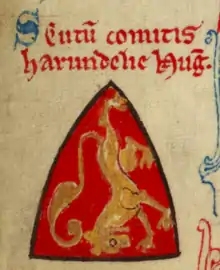 Scutū comitis
harundelie Hug̃.